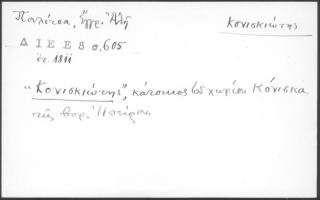 Κονισκιώτης
Παλέτσα, Ἔγγρ. Ἀλῆ
Δ Ι Ε Ε 8 σ. 605
ἔτ. 1811
"Κονισκιώτης", κάτοικος τοῦ χωρίου Κόνισκα
τῆς βορ. Ἠπείρου.